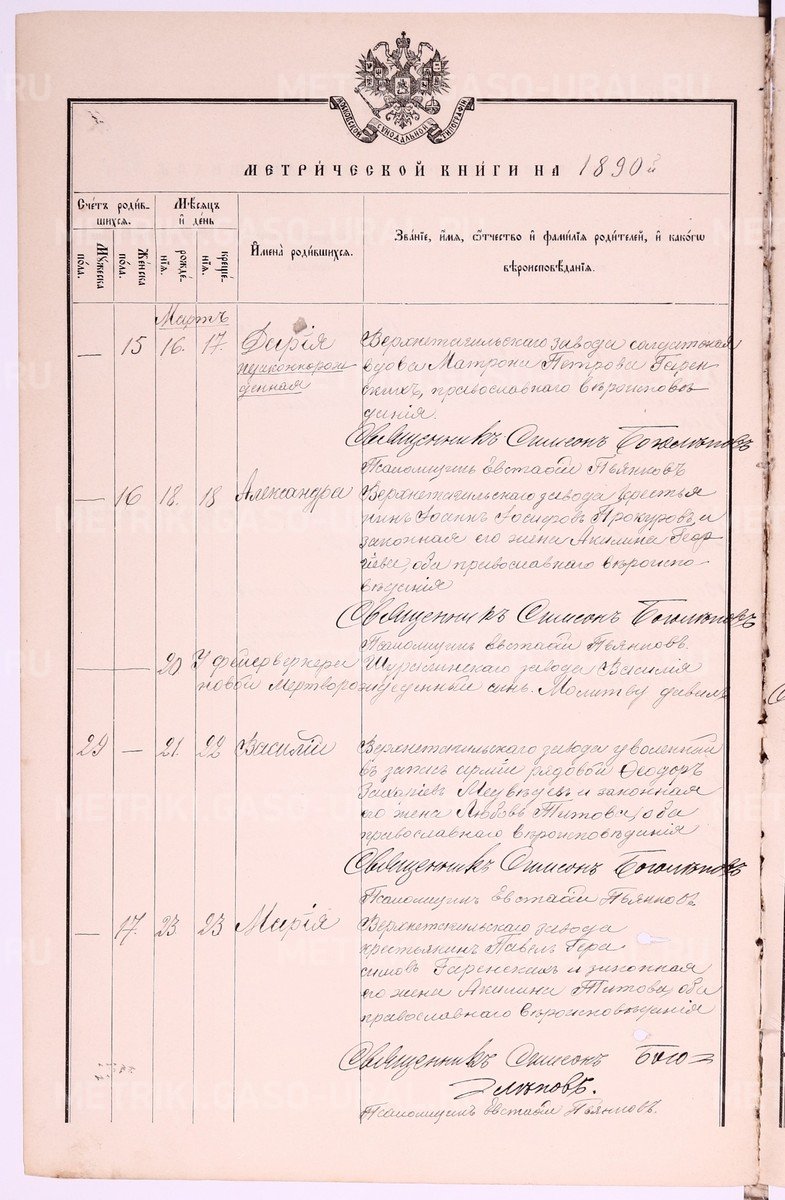 МОСКОВСКОЙ СѴНОДАЛЬНОЙ ТИПОГРАФІИ
МЕТРИ́ЧЕСКОЙ КНИ́ГИ НА 1890 й
Сче́тъ роди́в-
шихся.
Мѣ́сяцъ
и҆ де́нь
Му́жеска
по́ла.
Же́нска
по́ла.
рожде́-
нїѧ.
креще́-
нїѧ.
И҆мена̀ роди́вшихсѧ.
Зва́нїе, и҆́мѧ, ѻ҆́тчество и҆ фами́лїѧ роди́телей, и҆ како́гѡ
вѣроисповѣ́данїѧ.
Мартъ
— 15 16. 17. Дарія Верхнетагильскаго завода солдатская
незаконнорож вдова Матрона Петрова Гарен-
денная скихъ, православнаго вѣроисповѣ-
данія.
Священникъ Симеонъ Боголѣповъ
Псаломщикъ Евстафій Пьянковъ
— 16 18. 18 Александра Верхнетагильскаго завода крестья
нинъ Іоаннъ Іосифовъ Прокуровъ, и
законная его жена Акилина Геор
гіева, оба православнаго вѣроиспо-
вѣданія
Священникъ Симеонъ Боголѣповъ
Псаломщикъ Евстафій Пьянковъ.
— — 20 У фейерверкера Шуралинскаго завода Василія
новой Мертворожденный сынъ. Молитву давалъ
29 — 21. 22 Василій Верхнетагильскаго завода уволенный
въ запасъ арміи рядовой Ѳеодоръ
Медвѣдевъ и законная
его жена Любовь Титова, оба
православнаго вѣроисповѣданія
Священникъ Симеонъ Боголѣповъ
Псаломщикъ Евстафій Пьянковъ
— 17. 23 23 Марія Верхнетагильскаго завода
крестьянинъ Павелъ Гера
симовъ Гаренскихъ и законная
его жена Акилина Титова, оба
православнаго вѣроисповѣданія
Священникъ Симеонъ Бого-
лѣповъ.
Псаломщикъ Евстафій Пьянковъ.